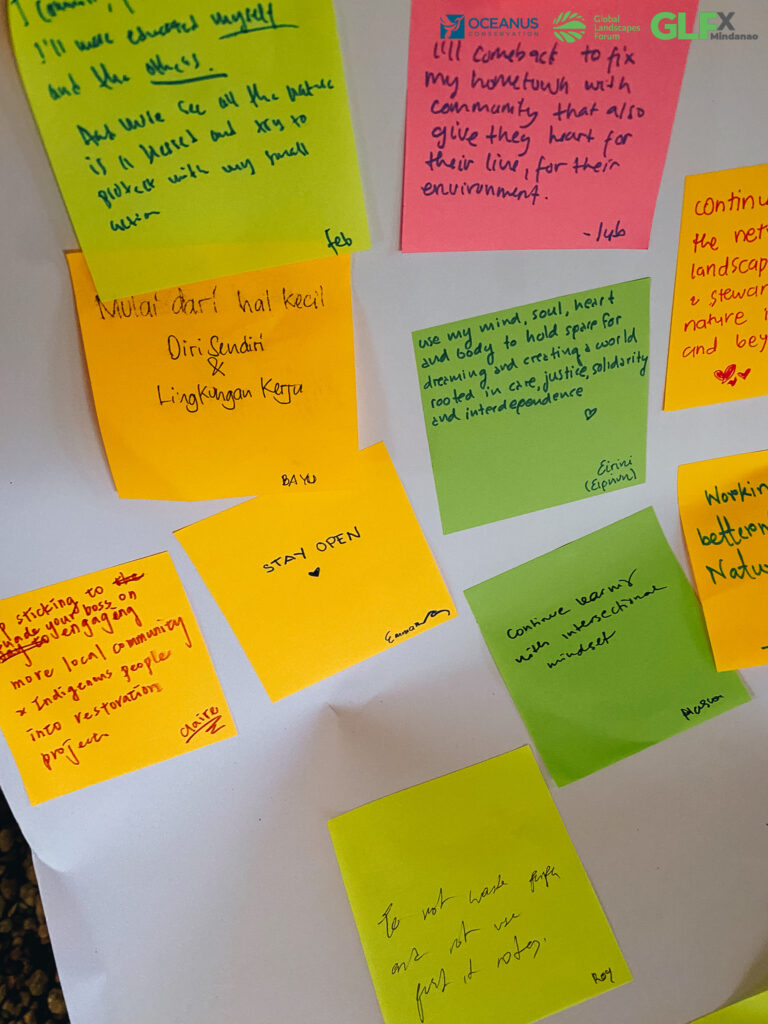 OCEANUS
CONSERVATION
Global
Landscapes
Forum
GLFX
Mindanao
I'll more educated myself
and the others.
And more see all the nature
is a blessed and try to
protect with my small
action
feb
I'll comeback to fix
my hometown with
community that also
give they heart for
their live, for their
environment.
Mulai dari hal kecil
Diri Sendiri
&
Lingkungan Kerja
BAYU
use my mind, soul, heart
and body to hold space for
dreaming and creating a world
rooted in care, justice, solidarity
and interdependence
Eirini
(Ειρήνη)
continu
the net
landscap
& stewar
nature i
and bey
STAY OPEN
p sticking to the
suade your boss on
to engageng
more local community
x Indigenous people
into restoration
project
Claire
continue learning
with intersectional
mindset
Workin
bettern
Natu
To not waste
and not use
post it notes.
Roy